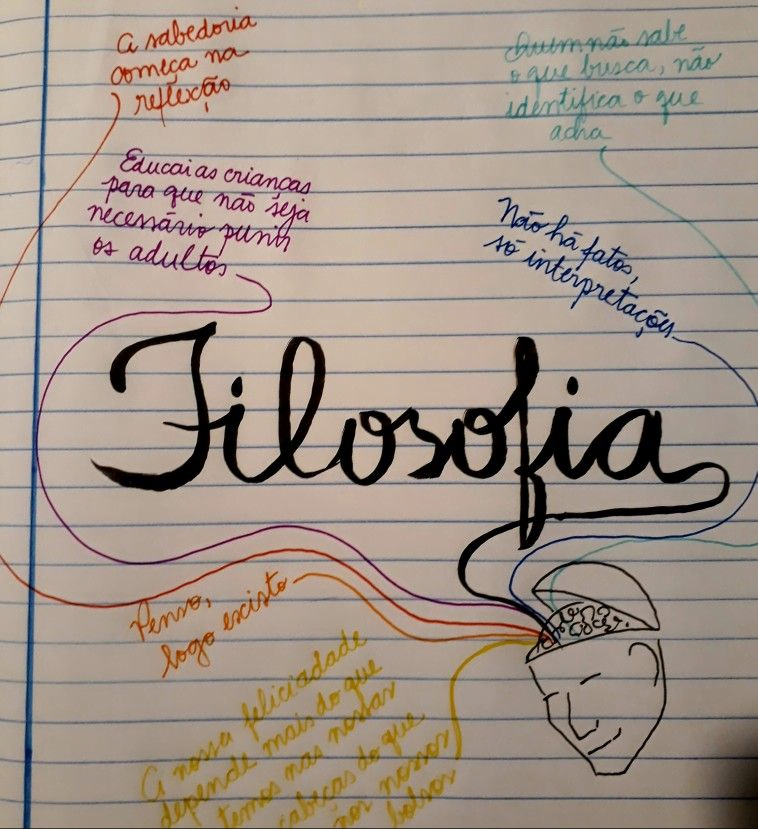 A sabedoria
começa na
reflexção
Quem não sabe
o que busca, não
identifica o que
acha
Educai as crianças
para que não seja
necessário punir
os adultos
Não há fatos,
só interpretações
Filosofia
Penso,
logo existo
A nossa feliciadade
depende mais do que
temos nas nossas
cabeças do que
nos nossos
bolsos